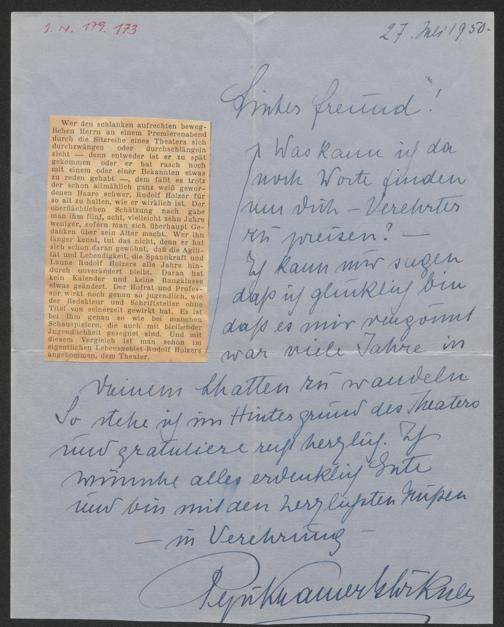 I. N. 179.173
27. Juli 1950.
Liebes Freund!
Wer den schlanken aufrechten beweg-
lichen Herrn an einem Premierenabend
durch die Sitzreihe eines Theaters sich
durchzwängen oder durchschlängeln
sieht —, denn entweder ist er zu spät
gekommen oder er hat rasch noch
mit einem oder einer Bekannten etwas
zu reden gehabt —, dem fällt es trotz
der schon allmählich ganz weiß gewor-
denen Haare schwer, Rudolf Holzer für
so alt zu halten, wie er wirklich ist. Der
oberflächlichen Schätzung nach gäbe
man ihm fünf, acht, vielleicht zehn Jahre
weniger, sofern man sich überhaupt Ge-
danken über sein Alter macht. Wer ihn
länger kennt, tut das nicht, denn er hat
sich schon daran gewöhnt, daß die Agili-
tät und Lebendigkeit, die Spannkraft und
Laune Rudolf Holzers alle Jahre hin-
durch unverändert bleibt. Daran hat
kein Kalender und keine Rangklasse
etwas geändert. Der Hofrat und Profes-
sor wirkt noch genau so jugendlich, wie
der Redakteur und Schriftsteller ohne
Titel von seinerzeit gewirkt hat. Es ist
bei ihm genau so wie bei manchen
Schauspielern, die auch mit bleibender
Jugendlichkeit gesegnet sind. Und mit
diesem Vergleich ist man schon im
eigentlichen Lebensgebiet Rudolf Holzers
angekommen, dem Theater.
Was kann ich da
noch Worte finden
um dich – Verehrter
zu preisen? —
Ich kann nur sagen
daß ich glücklich bin
daß es mir vergönnt
war viele Jahre in
Deinem Schatten zu wandeln
So stehe ich im Hintergrund des Theaters
und gratuliere recht herzlich. Ich
wünsche alles erdenklich Gute
und bin mit den herzlichsten Grüßen
— in Verehrung —